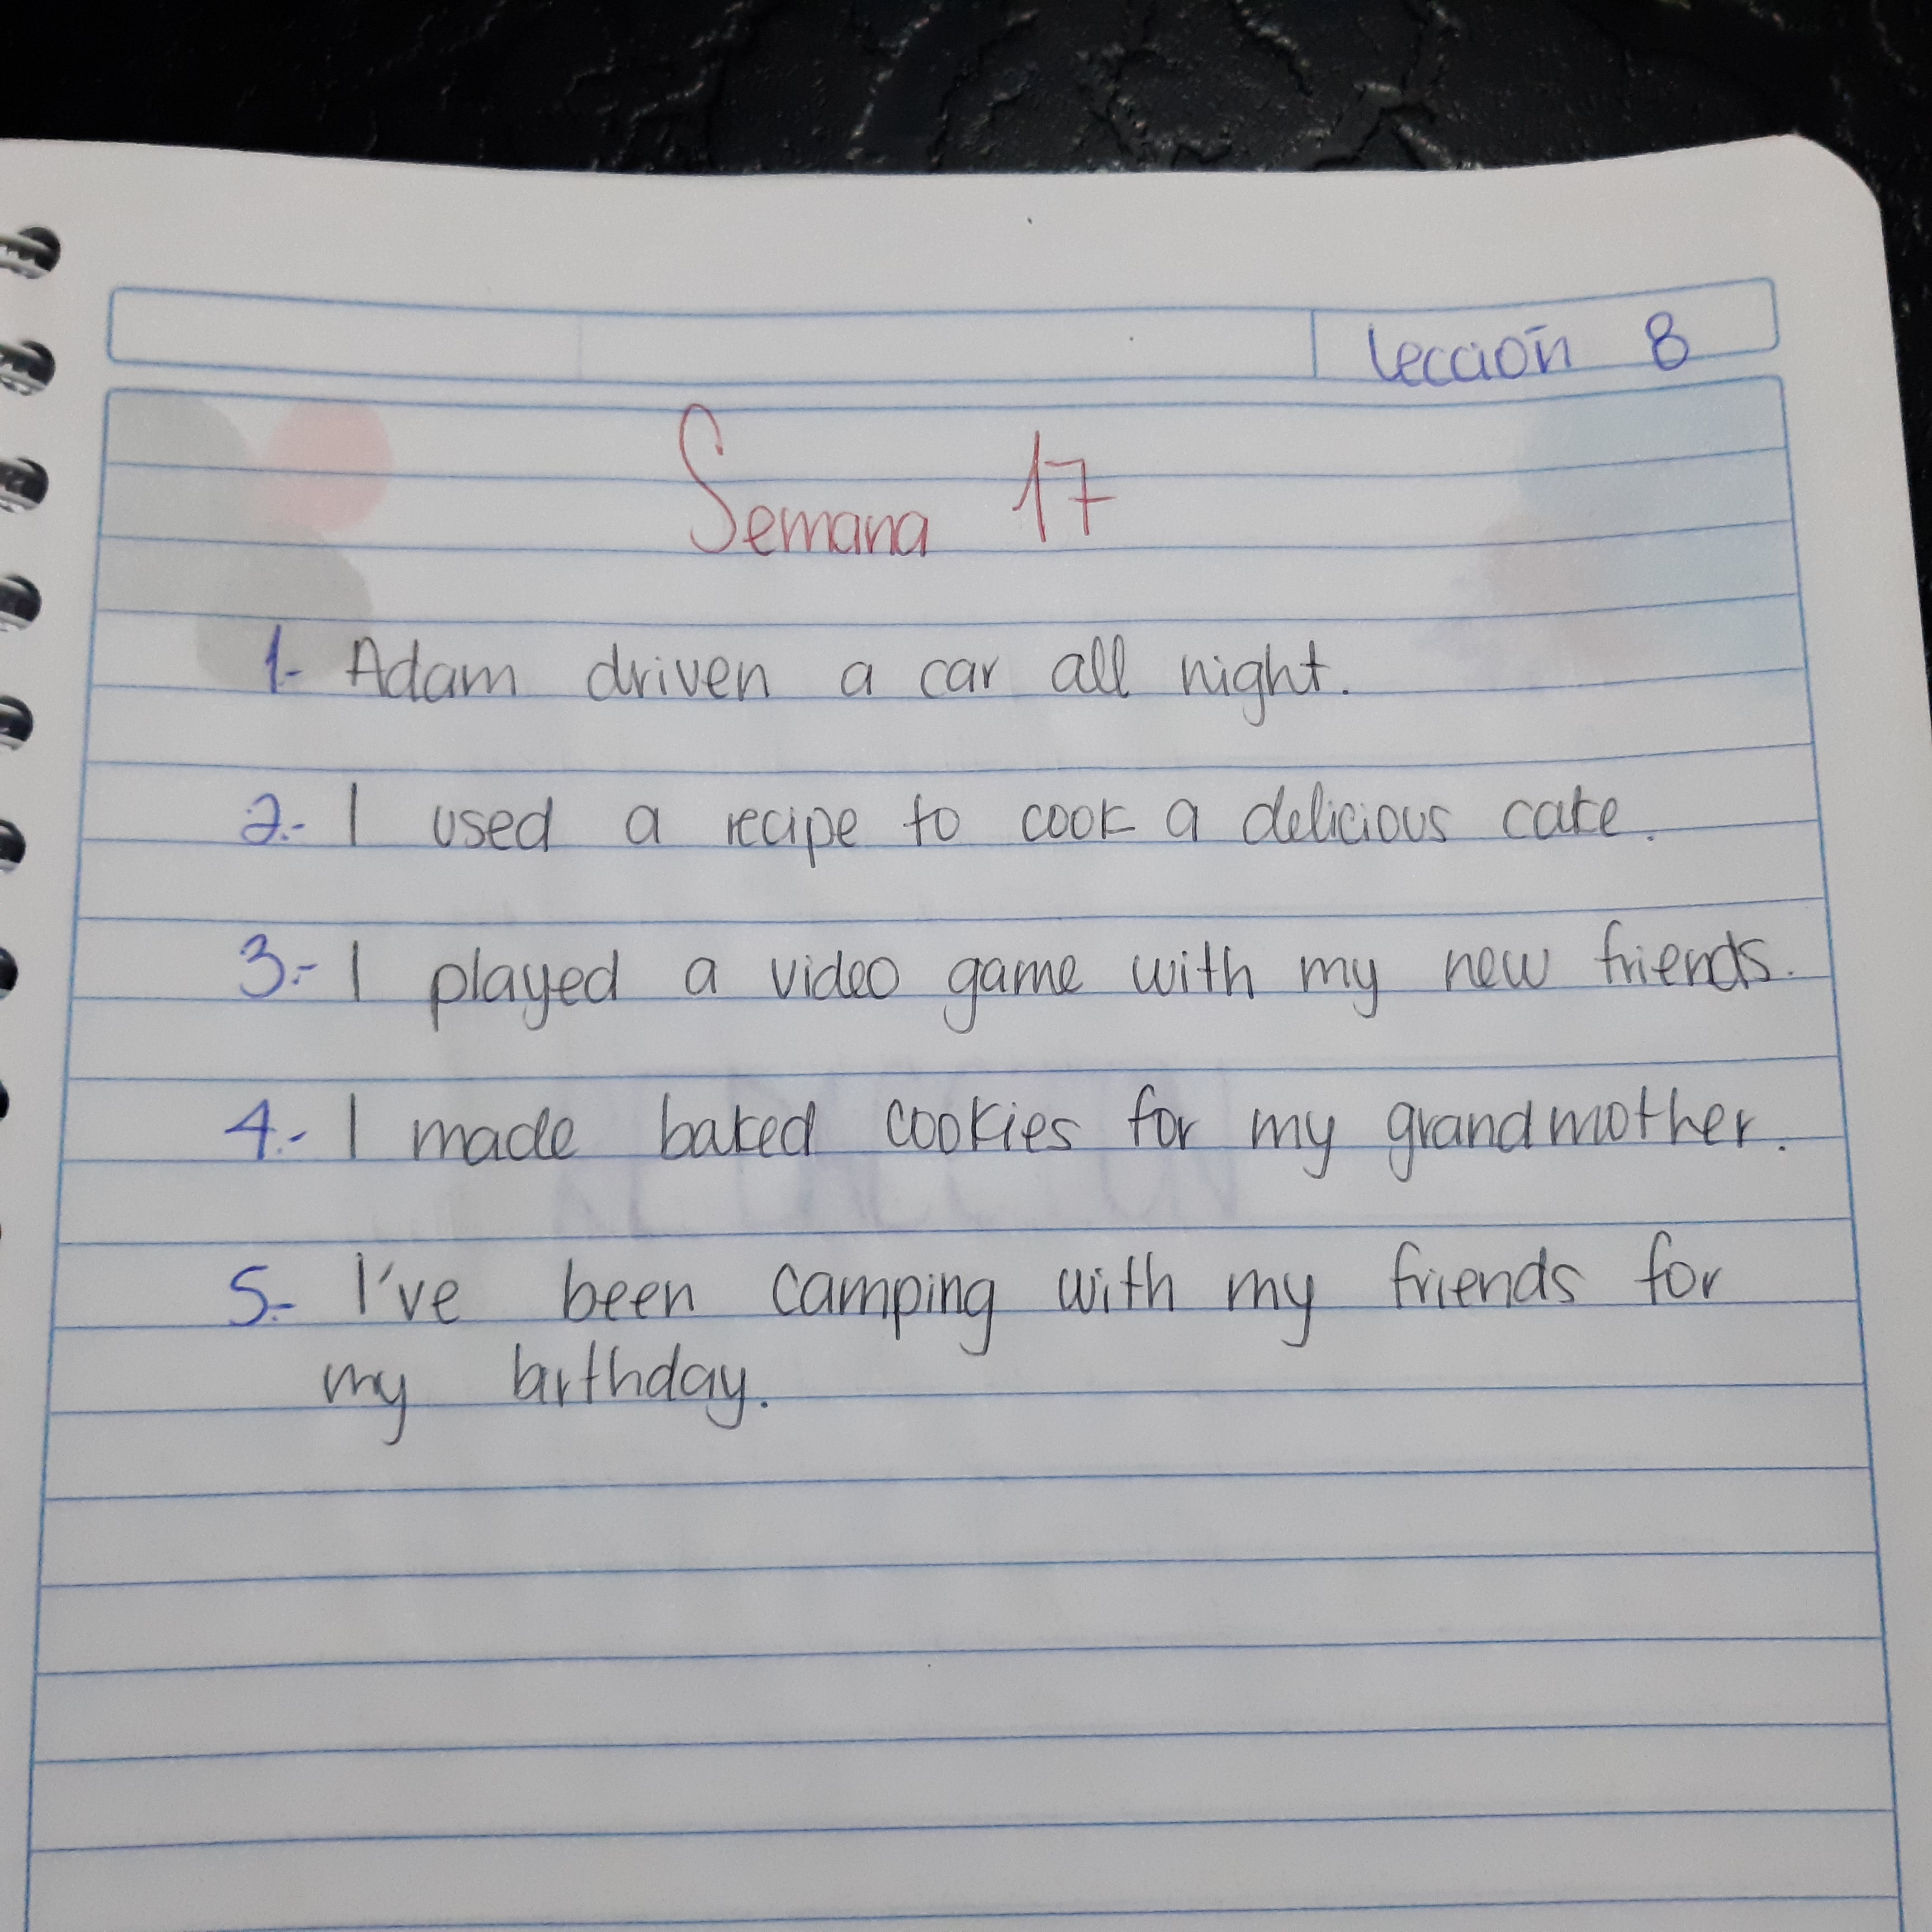 Lección 8
Semana 17
1- Adam driven a car all night.
2.- I used a recipe to cook a delicious cake.
3.- I played a video game with my new friends.
4.- I made baked cookies for my grandmother.
5.- I've been camping with my friends for
my birthday.